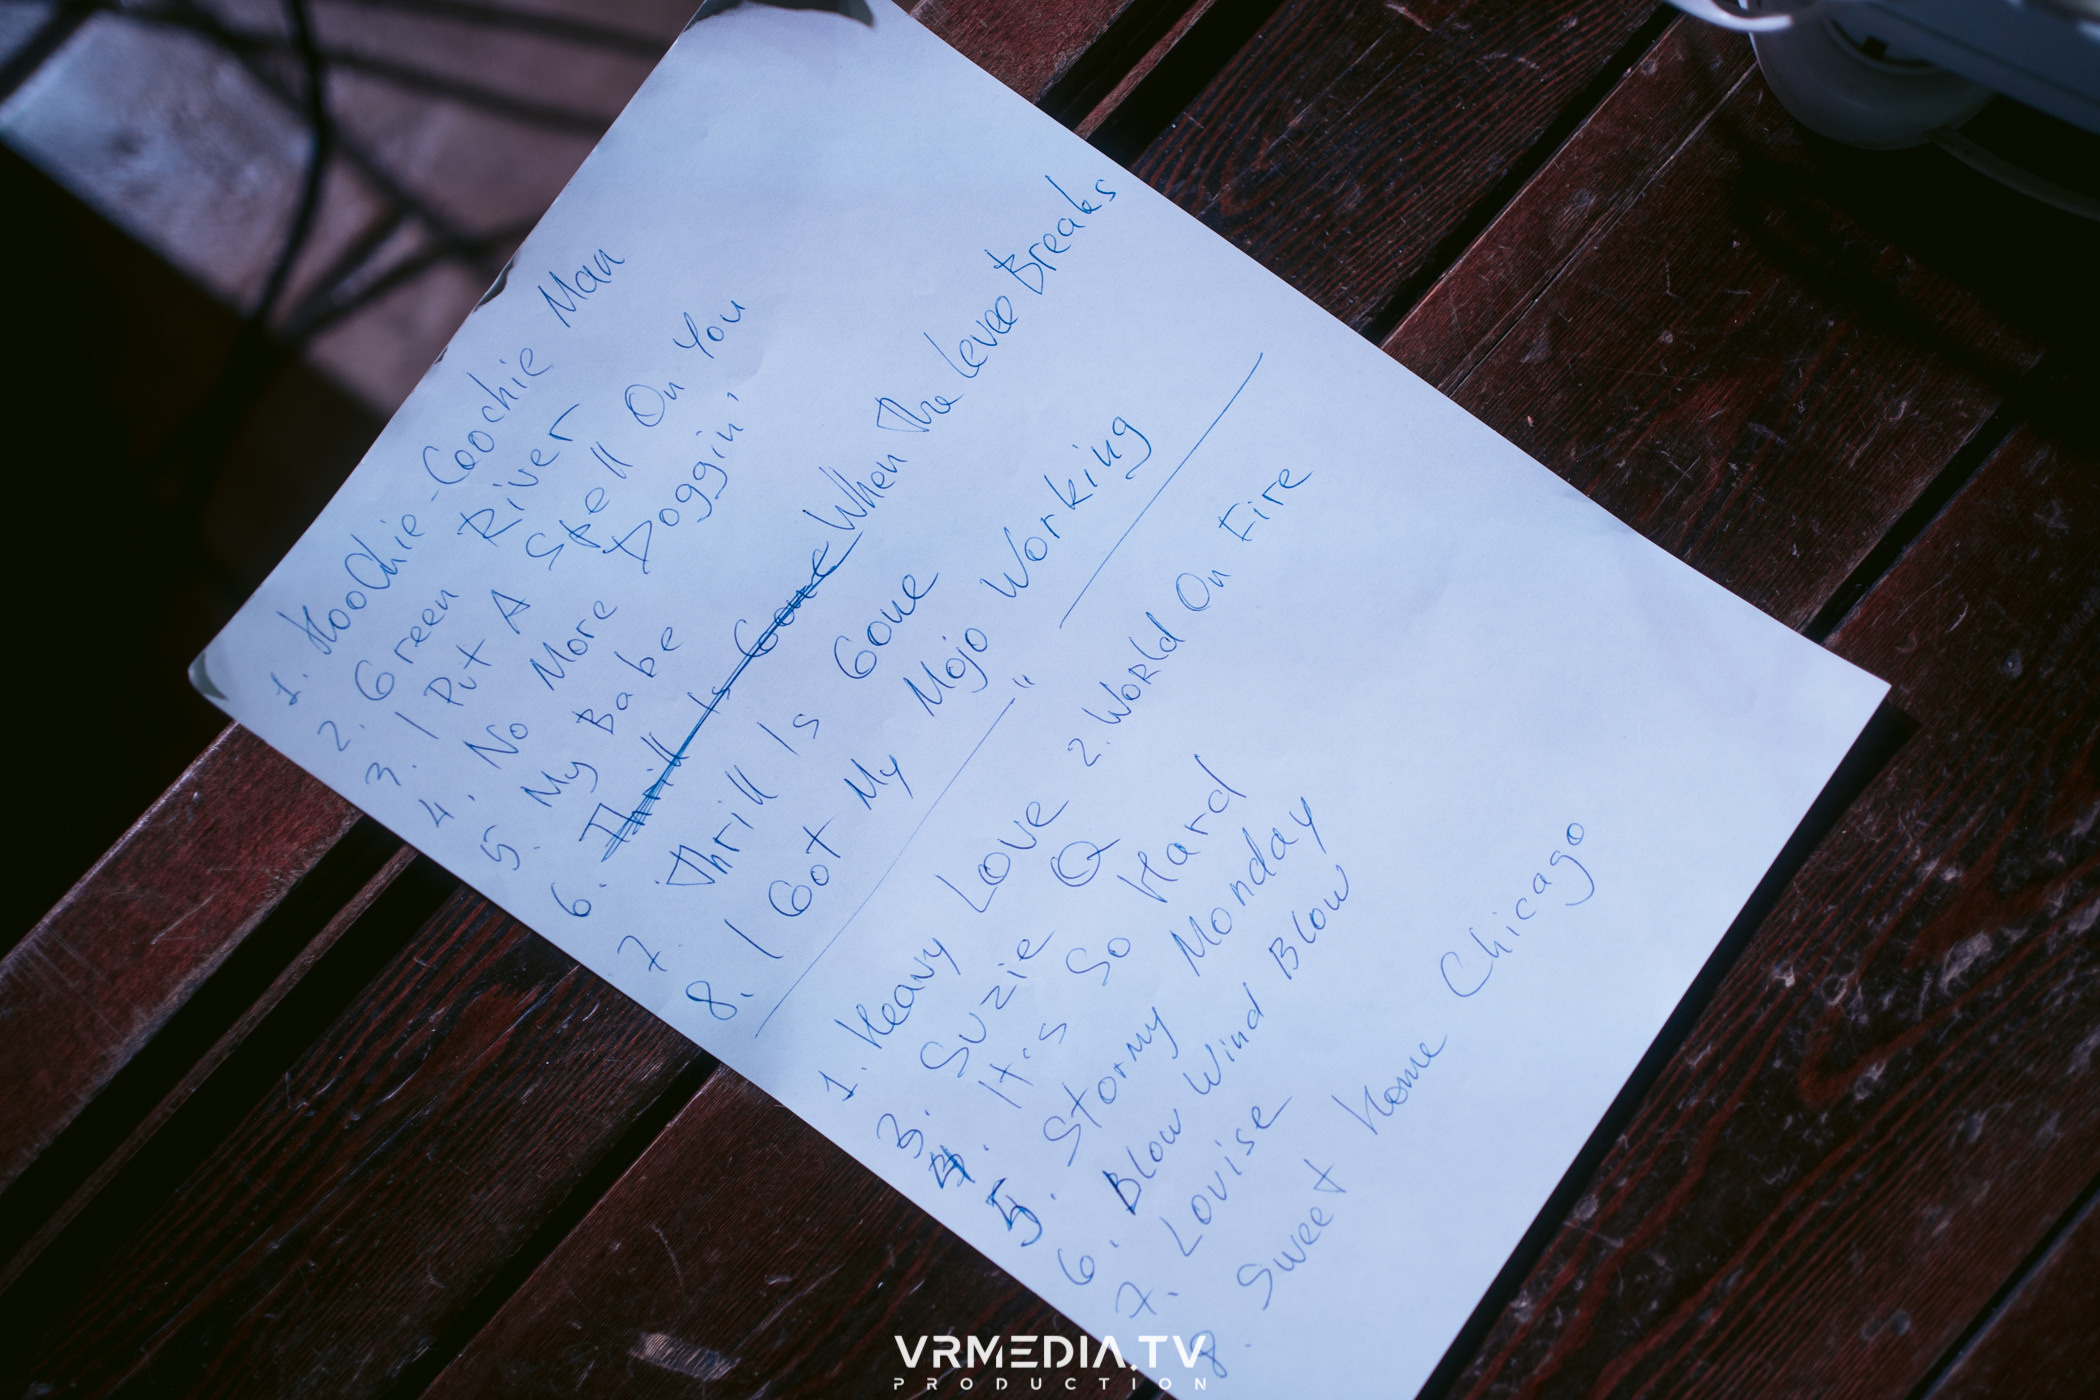 1. HooChie-Coochie Man
2. Green River
3. I Put A Spell On You
4. No More Doggin'
5. My Babe
6. Thrill Is Gone When The Levee Breaks
7. Thrill Is Gone
8. I Got My Mojo Working
"
1. Heavy Love 2. World On Fire
3. Suzie Q
4. It's So Hard
5. Stormy Monday
6. Blow Wind Blow
7. Louise
8. Sweet Home Chicago
VRMEDIA.TV
PRODUCTION